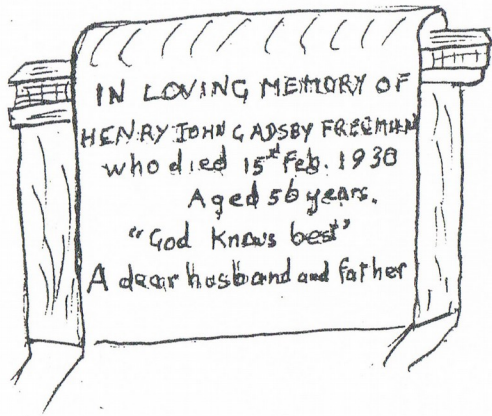 IN LOVING MEMORY OF
HENRY JOHN GADSBY FREEMAN
who died 15th Feb. 1938
Aged 56 years.
"God Knows best"
A dear husband and father